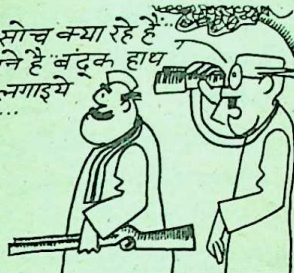 सोच क्या रहे हैं...
ने है बंदूक हाथ
लगाइये
...